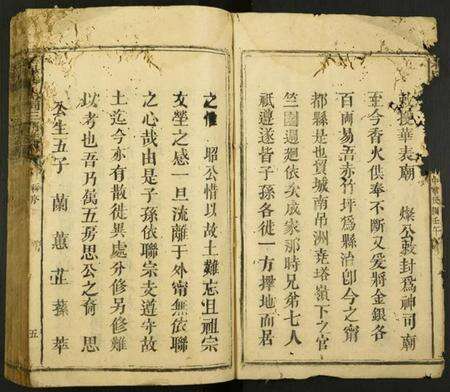 敕授華表廟　燦公敕封爲神司廟
至今香火供奉不斷又爰將金銀各
百両易吾赤竹坪爲縣治卽今之甯
都縣是也貿城南吊洲堯塔嶺下之官
竺園廻依次成家那時兄弟七人
祇遵遂皆子孫各徙一方擇地而居
之惟　昭公惜以故土難忘且祖宗
坟塋之感一旦流離于外甯無依聯
之心哉由是子孫依聯宗支遵守故
土迄今亦有散徙異處分修另修難
以考也吾乃萬五房思公之裔　思
公生五子　蘭蕙芷蓀華
五